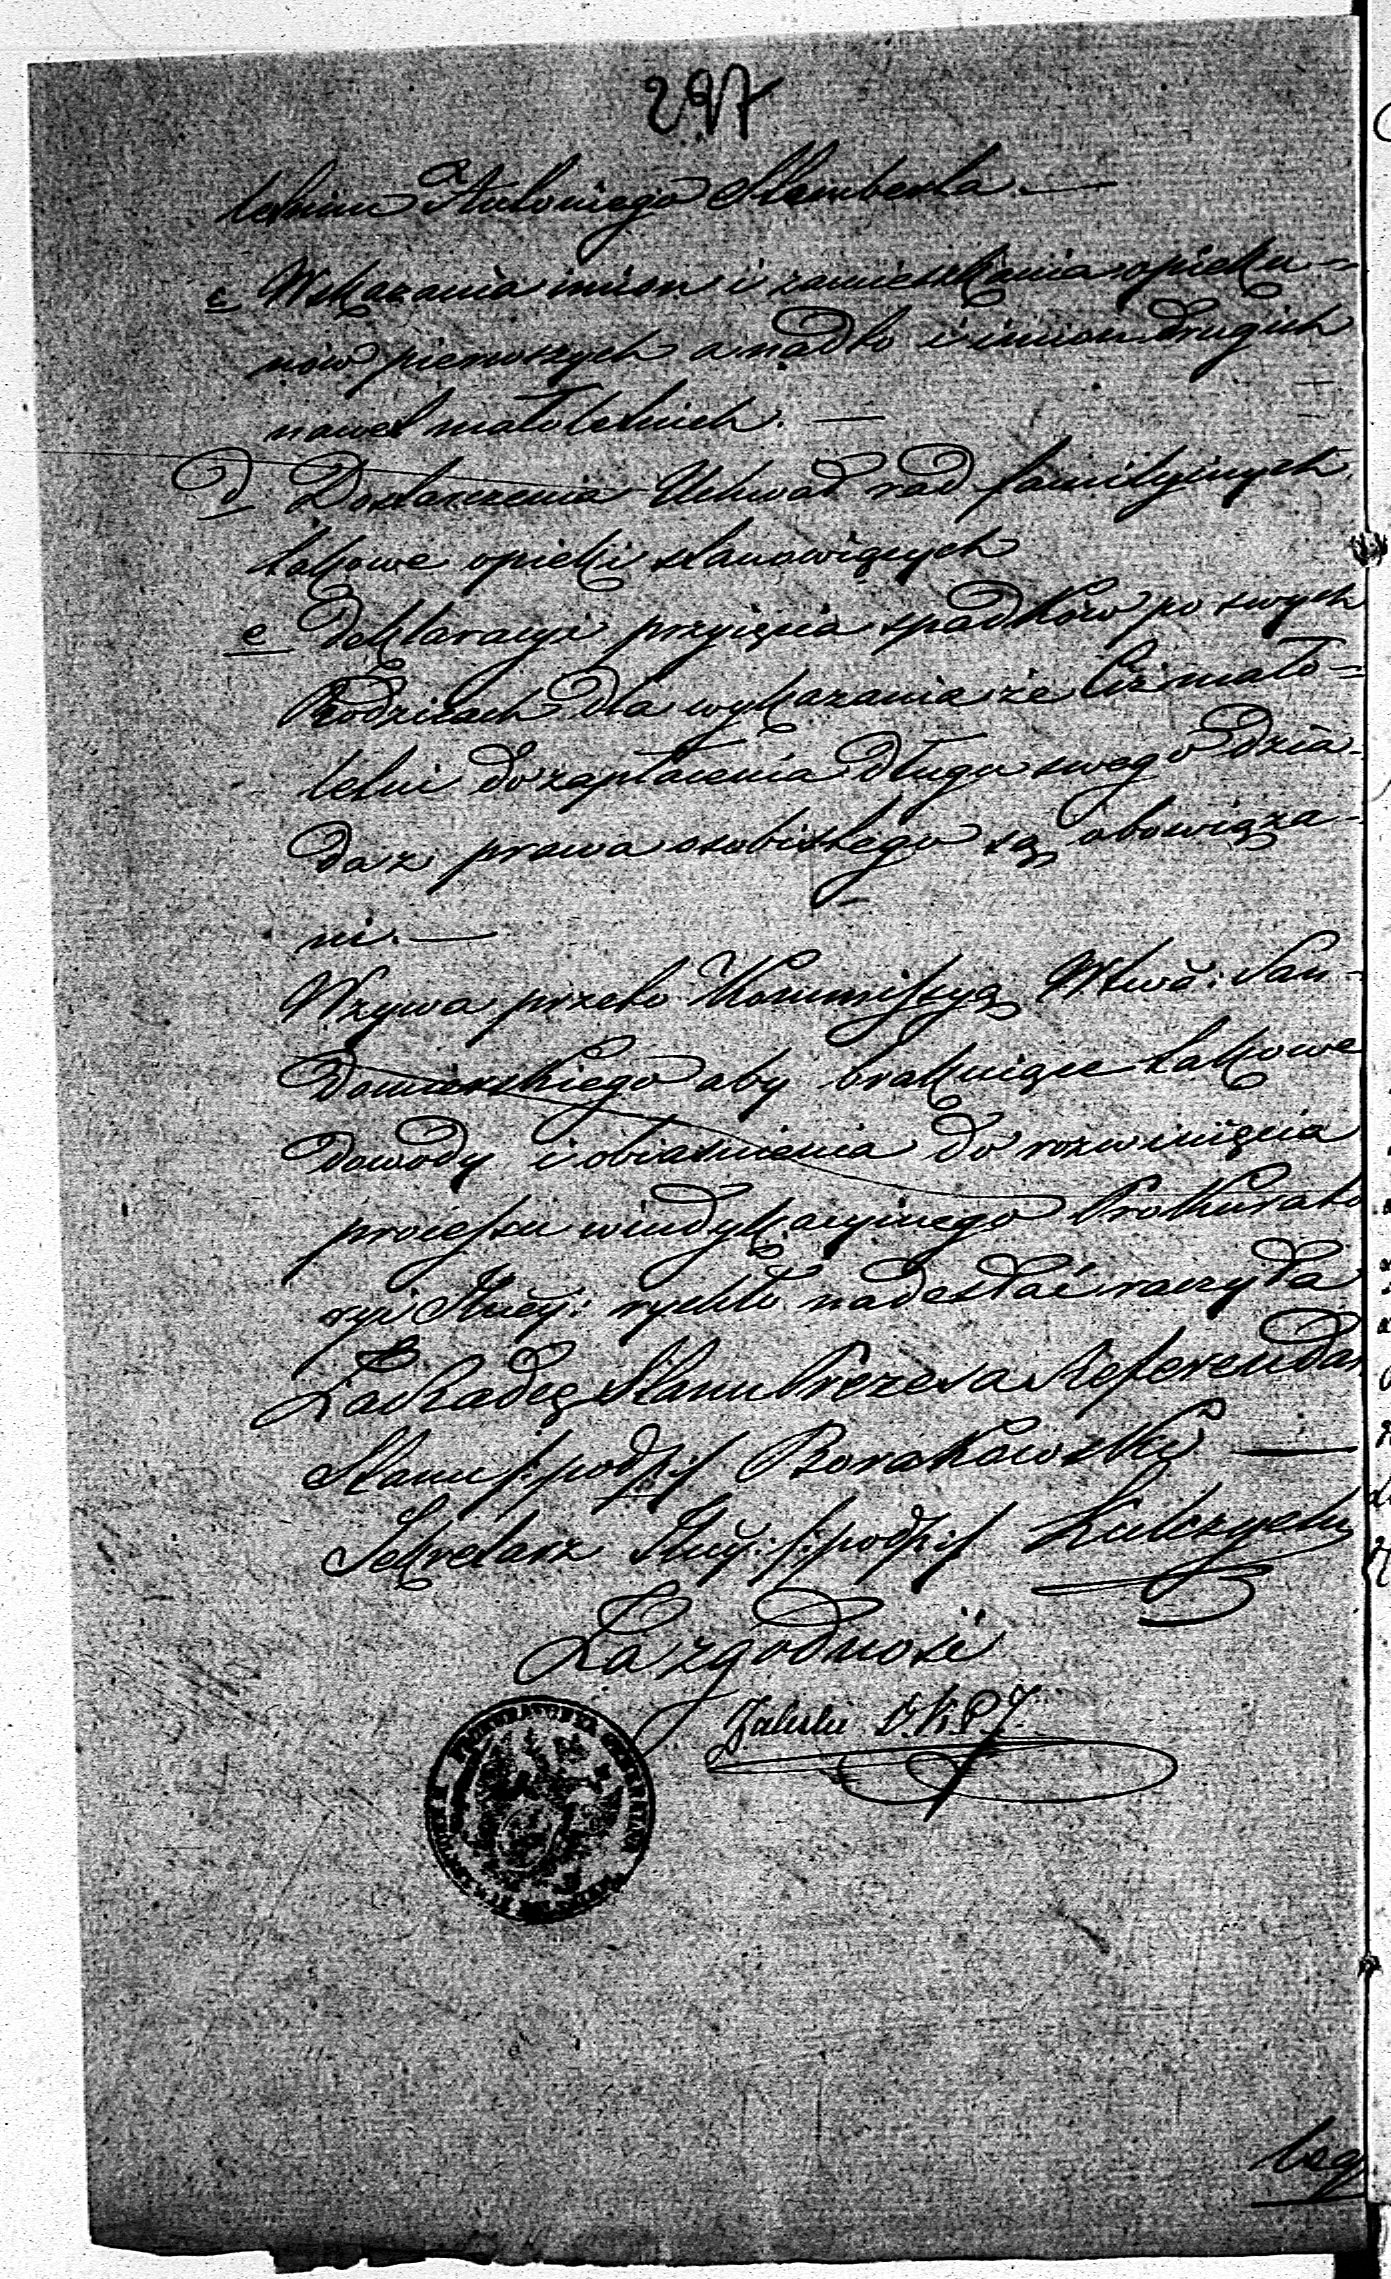 297
letniu Antoniego Stemberka. —
c Wskazania imion i zamieszkania opieku=
nów pierwszych a nadto i imion drugich
nawet małoletnich. —
d Dostarczenia Uchwał rad familyinych
takowe opieki stanowiących
e deklaracyi przyięcia spadków po swych
Rodzicach dla wykazania że Ciż mało=
letni do zapłacenia długu swego dzia-
da z prawa osobistego są obowiąza-
ni. —
Wzywa przeto Kommissyą Wtwa: San-
domierskiego aby brakuiące takowe
dowody i obiasnienia do rozwinięcia
processu windykacyinego Prokurato
ryi rychło nadesłać raczyła
Za Radcę Stanu Prezesa Referendarz
Stanu /:podpis/ Borakowski —
Sekretarz /:podpis/ Kulczycki
Za zgodność
Zaleski
PROKURATORYA GENERALNA